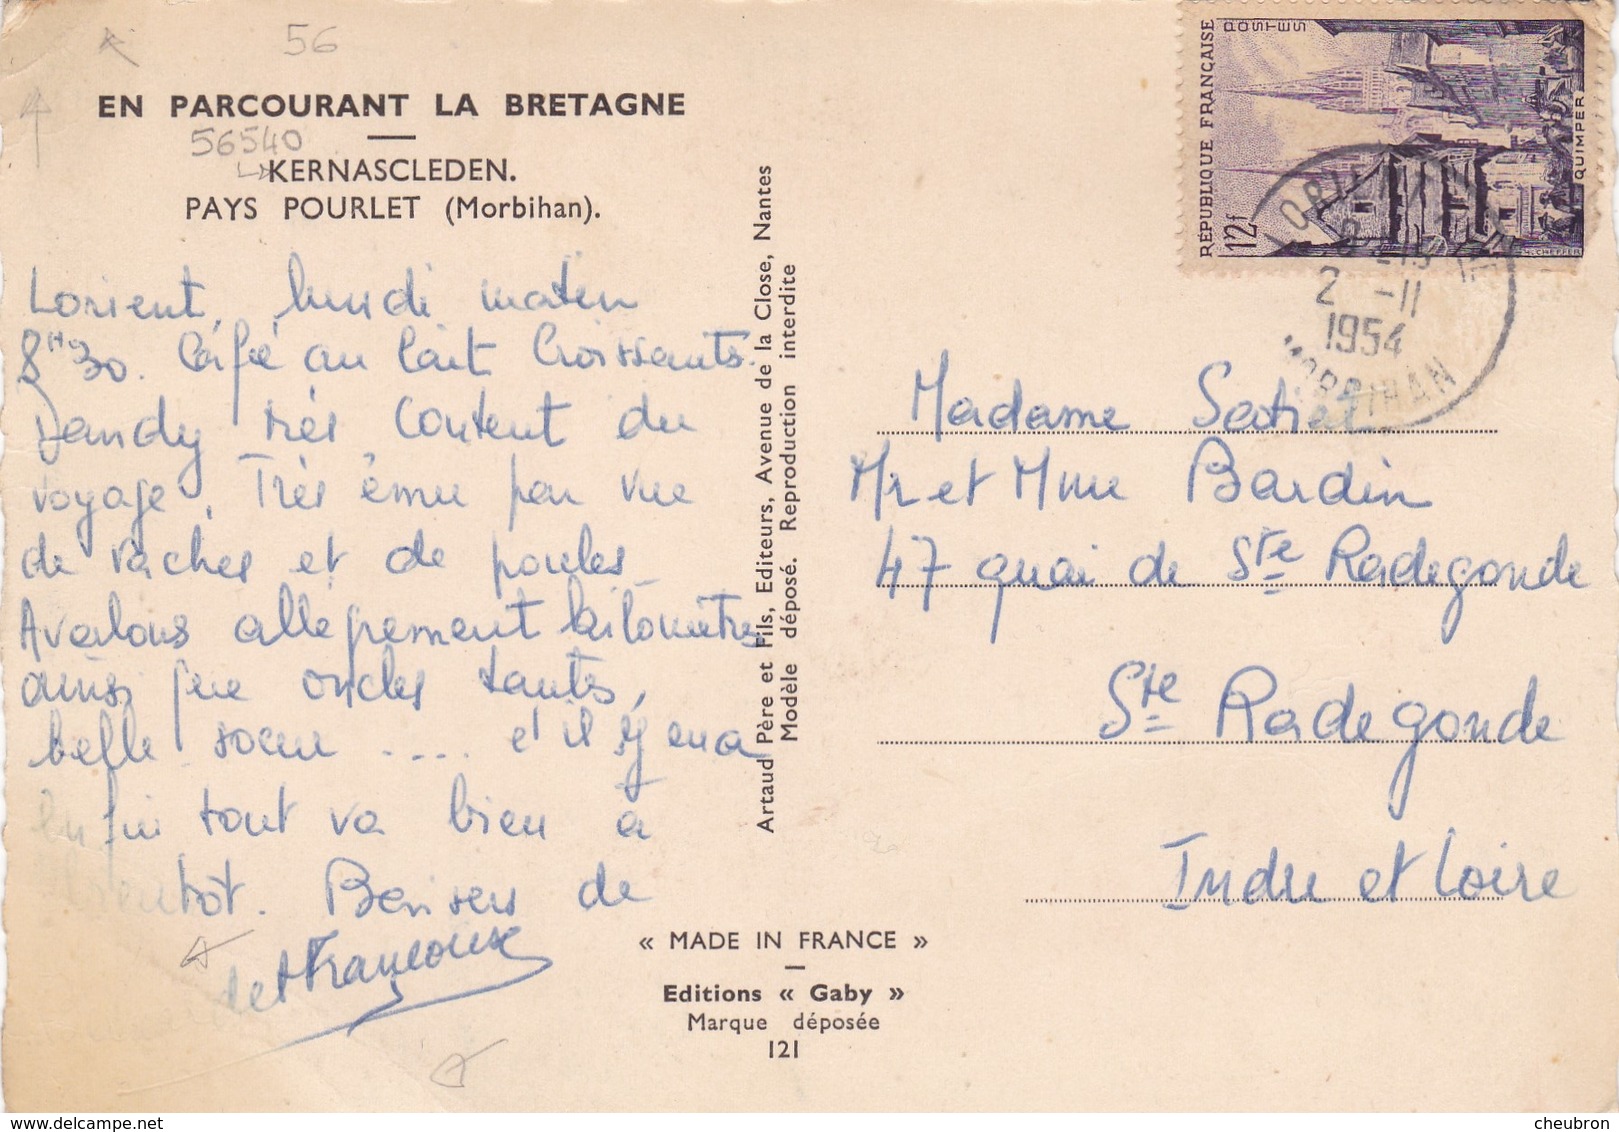 56
EN PARCOURANT LA BRETAGNE
56540
KERNASCLEDEN.
PAYS POURLET (Morbihan).
Lorient, lundi matin
8H30. Café au lait Croissants.
Dandy très content du
voyage. Très ému par vue
de vaches et de poules
Avalons allègrement kilomètres
ainsi que oncles tantes,
belle soeur .... s'il y en a
Enfin tout va bien à
bientôt. Baisers de
Françoise
Artaud Père et Fils, Editeurs, Avenue de la Close, Nantes
Modèle déposé. Reproduction interdite
RÉPUBLIQUE FRANÇAISE
POSTES
12f
QUIMPER
2 -11
1954
MORBIHAN
Madame
Mr et Mme Bardin
47 quai de Ste Radegonde
Ste Radegonde
Indre et Loire
« MADE IN FRANCE »
Editions « Gaby »
Marque déposée
121
cheubron - www.delcampe.net